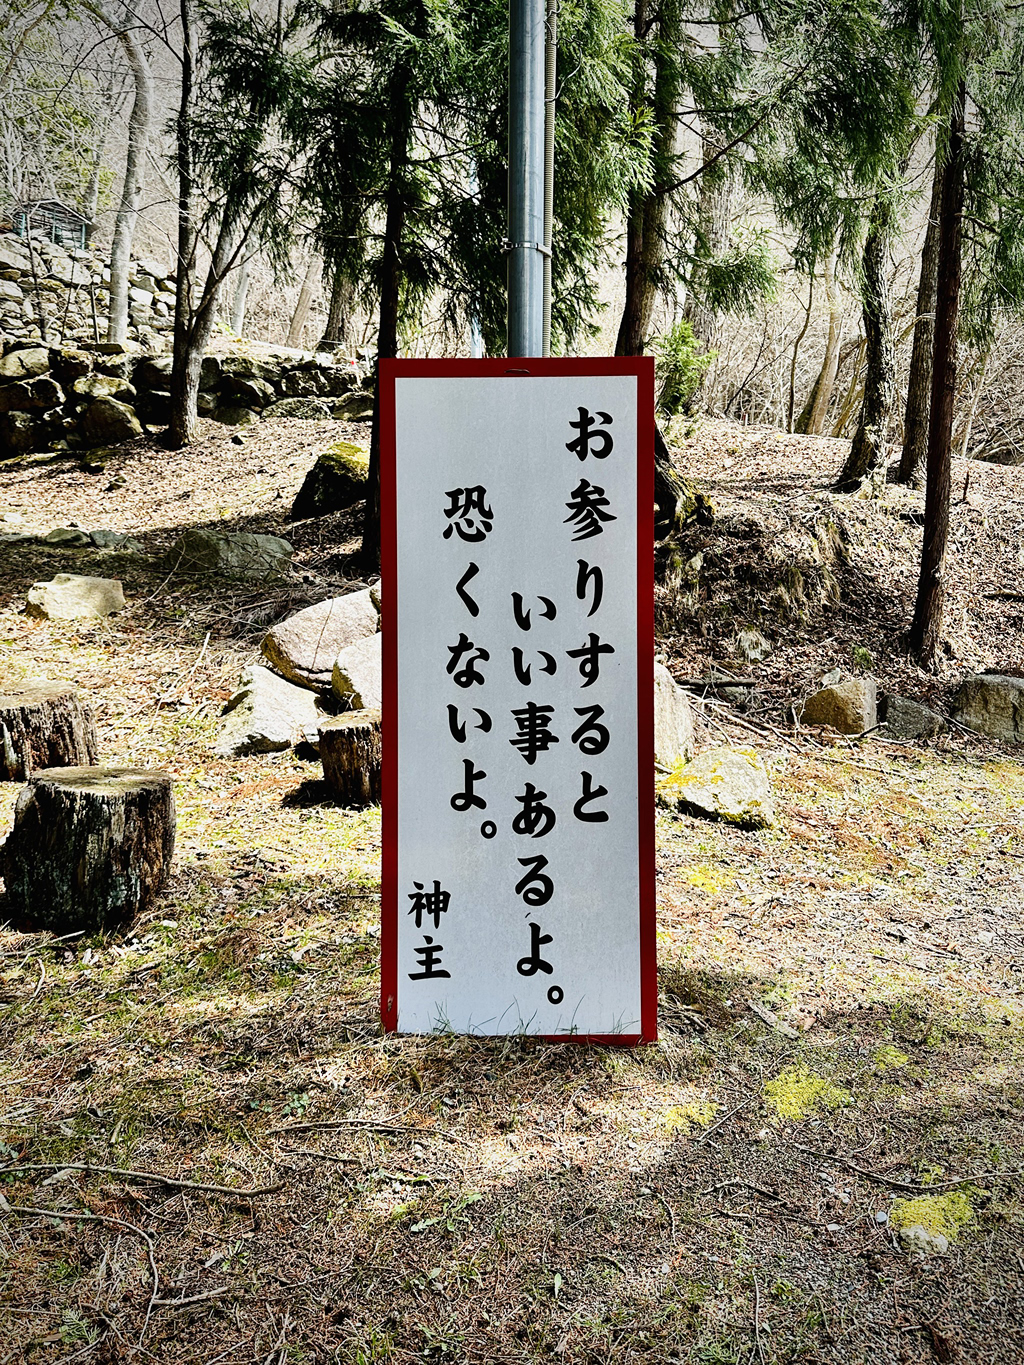 お参りすると
いい事あるよ。
恐くないよ。
神主